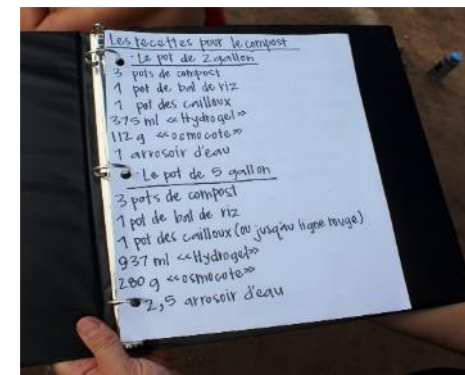 Les recettes pour le compost
Le pot de 2 gallon
3 pots de compost
1 pot de bal de riz
1 pot des cailloux
375 ml «Hydrogel»
112 g «osmocote»
1 arrosoir d'eau
Le pot de 5 gallon
3 pots de compost
1 pot de bal de riz
1 pot des cailloux (ou jusqu'au ligne rouge)
937 ml «Hydrogel»
280 g «osmocote»
2,5 arrosoir d'eau